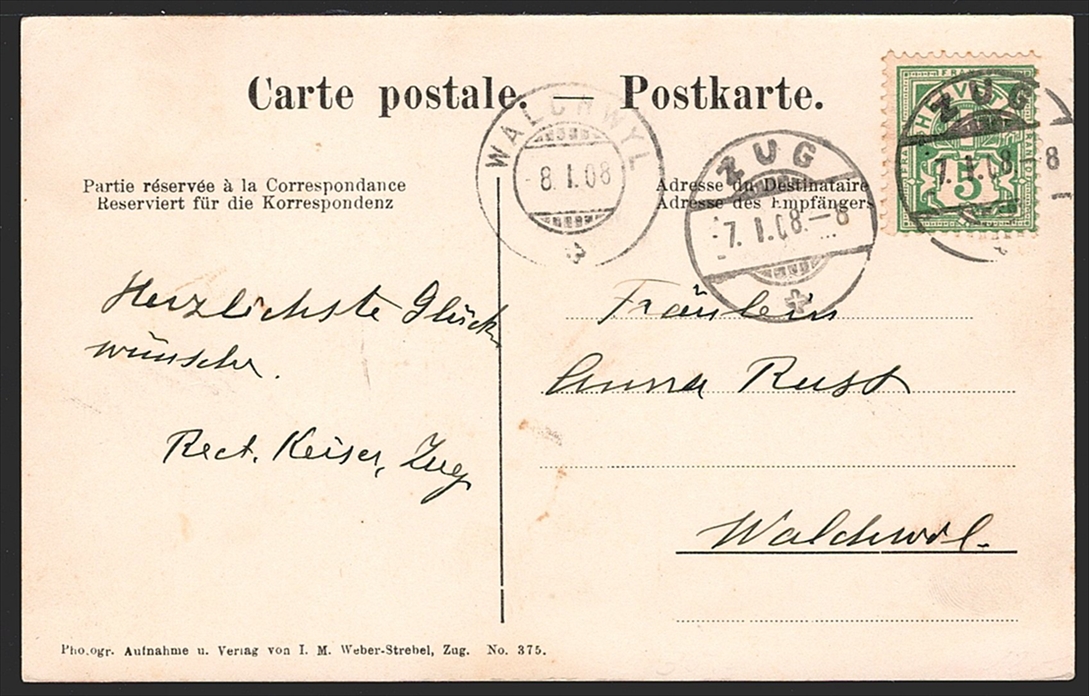 Carte postale. — Postkarte.
WALCHWYL
8.I.08
ZUG
7.I.08.–8
ZUG
7.I.08–8
FRANCO
HELVETIA
5
Partie réservée à la Correspondance
Reserviert für die Korrespondenz
Adresse du Destinataire
Adresse des Empfängers
Herzlichste Glück
wünsche.
Rect. Keiser, Zug
Fräulein
Anna Rust
Walchwil.
Photogr. Aufnahme u. Verlag von I. M. Weber-Strebel, Zug. No. 375.